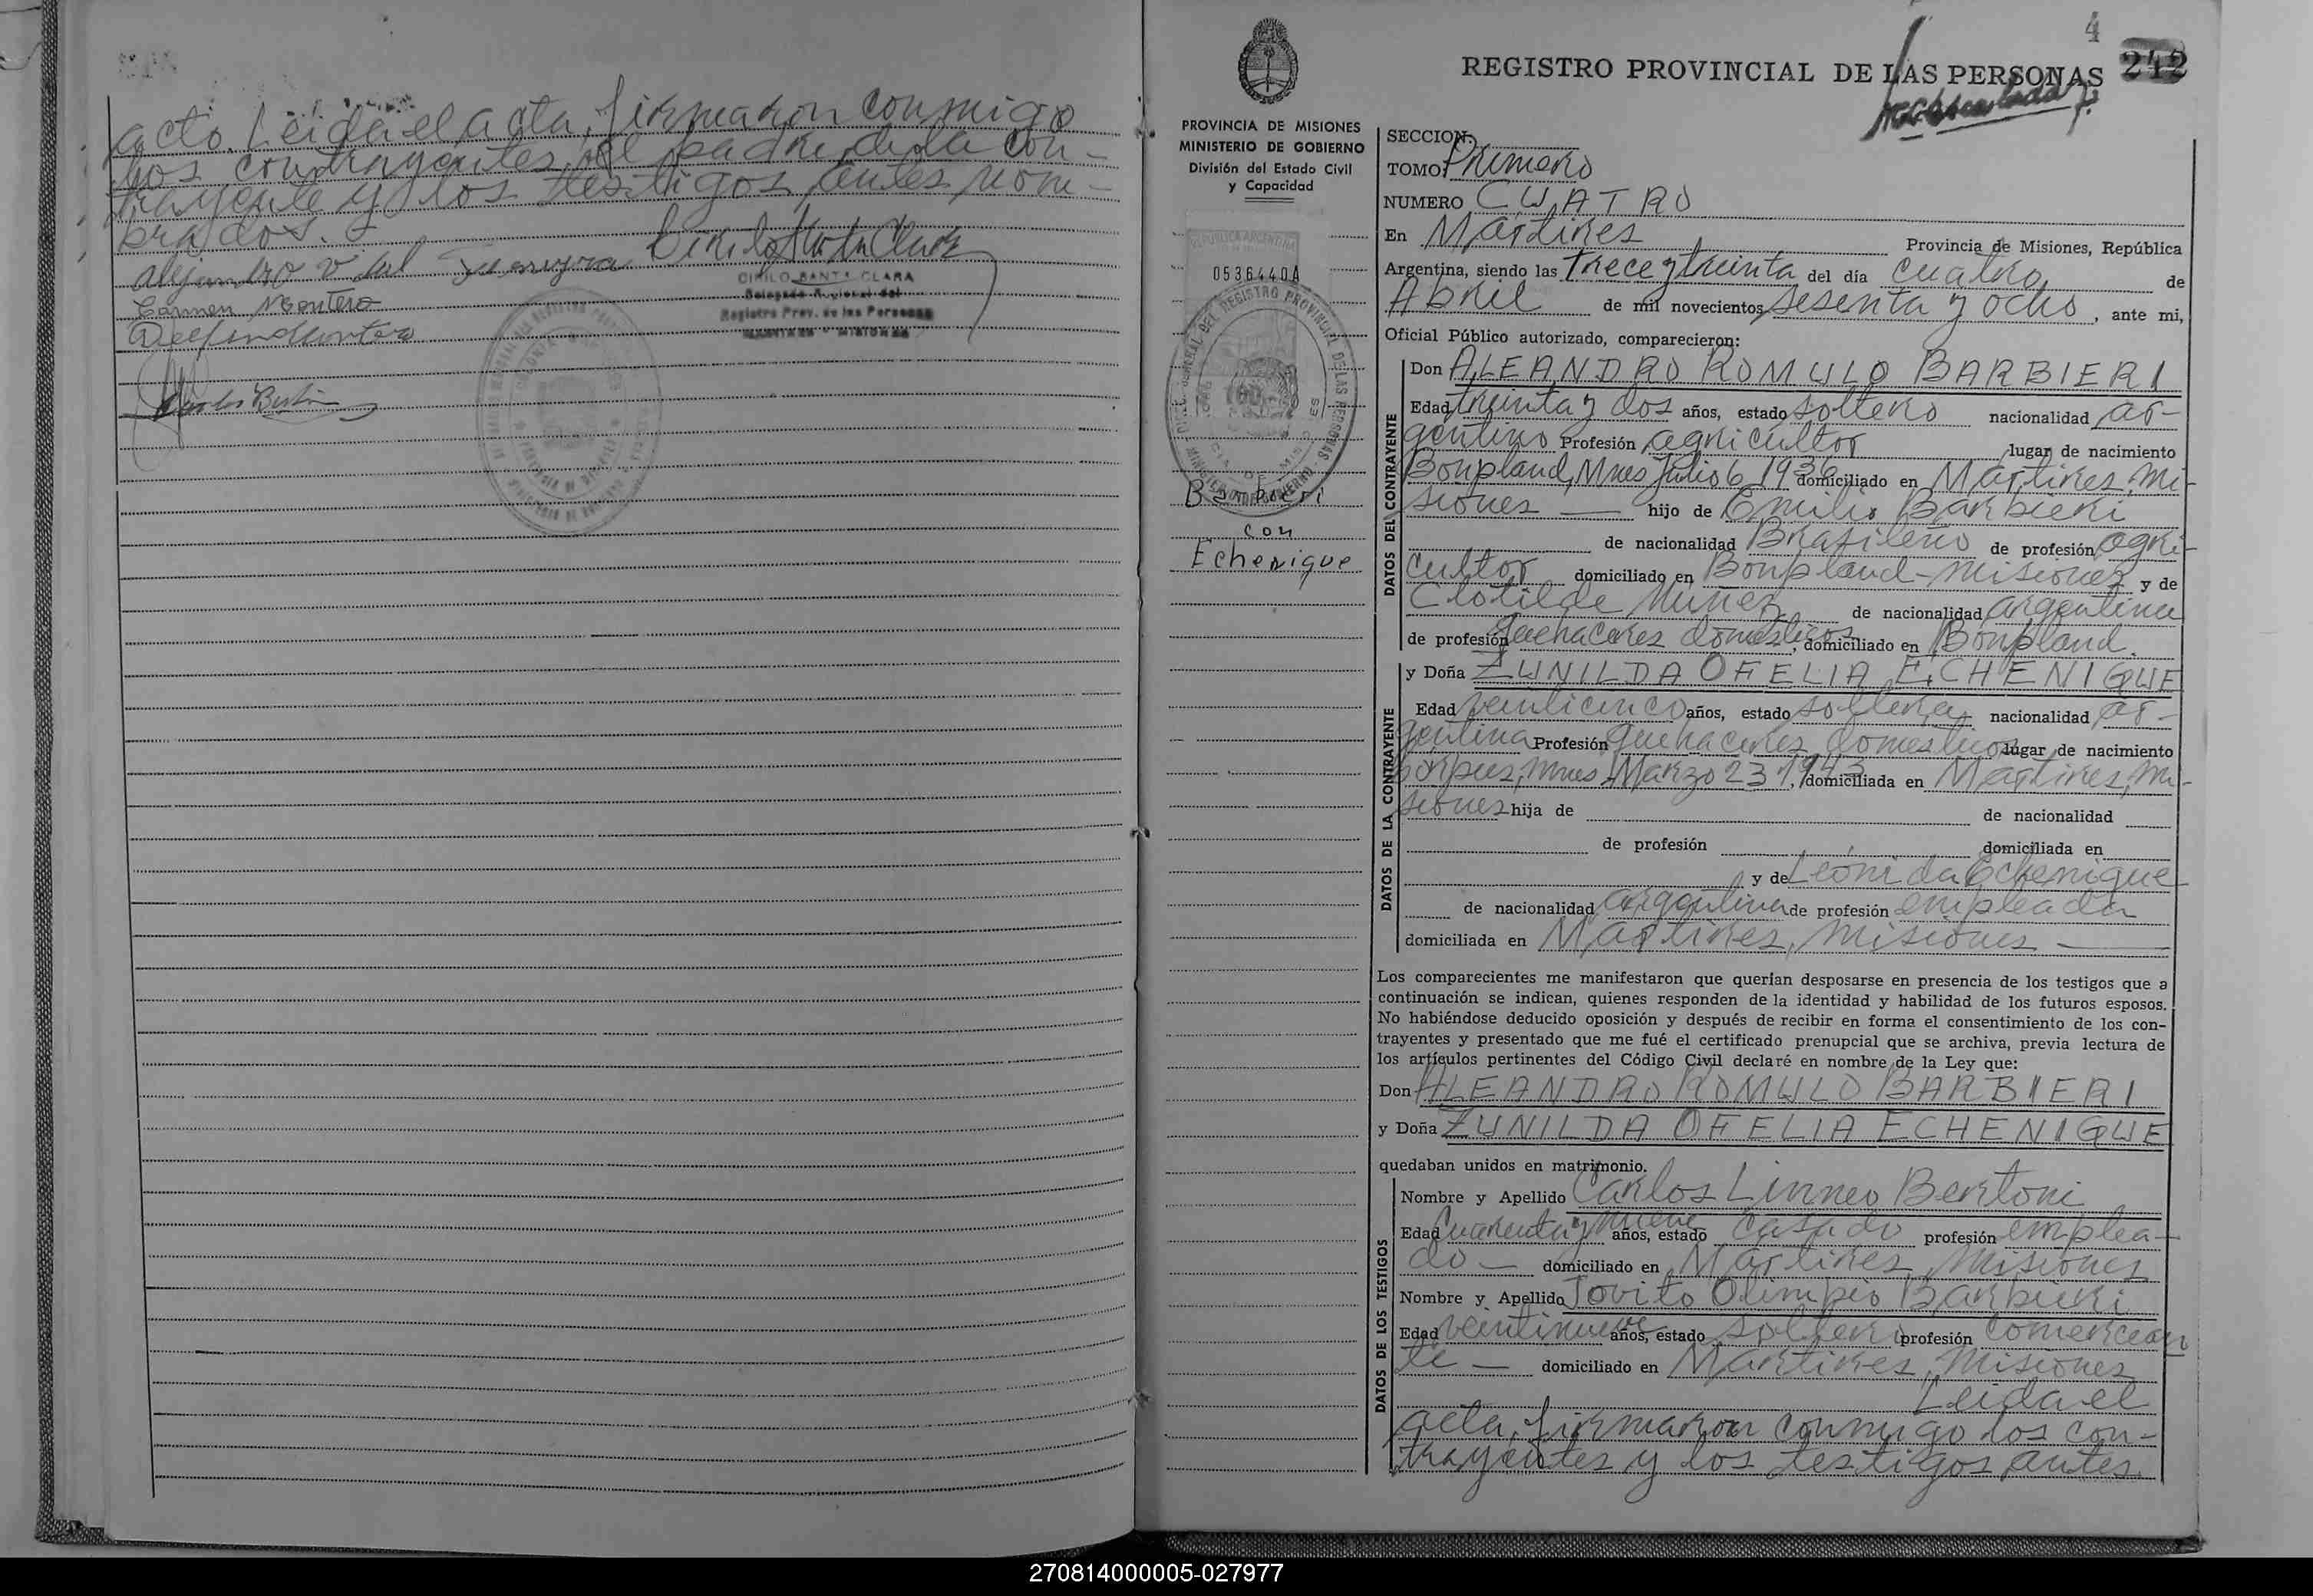 acto. Leida el acta, firmaron conmigo
los contrayentes, el padre de la con-
trayente y los testigos antes nom-
brados.
CIRILO SANTA CLARA
Delegado Regional del
Registro Prov. de las Personas
MARTIRES - MISIONES
Carmen Montero
4
REGISTRO PROVINCIAL DE LAS PERSONAS 242
PROVINCIA DE MISIONES
MINISTERIO DE GOBIERNO
División del Estado Civil
y Capacidad
REPUBLICA ARGENTINA
0536440A
Barbieri
con
Echenique
SECCION
TOMO Primero
NUMERO CUATRO
En Mártires Provincia de Misiones, República
Argentina, siendo las Trece y treinta del día cuatro de
Abril de mil novecientos sesenta y ocho, ante mi,
Oficial Público autorizado, comparecieron:
DATOS DEL CONTRAYENTE
Don ALEANDRO ROMULO BARBIERI
Edad treinta y dos años, estado soltero nacionalidad ar-
gentino Profesión agricultor lugar de nacimiento
Bonpland, Mnes Julio 6 1936 domiciliado en Mártires, Mi-
siones — hijo de Emilio Barbieri
de nacionalidad Brasileño de profesión agri-
cultor domiciliado en Bonpland - Misiones y de
Clotilde Nuñez de nacionalidad argentina
de profesión Quehaceres domesticos, domiciliado en Bonpland.
DATOS DE LA CONTRAYENTE
y Doña ZUNILDA OFELIA ECHENIQUE
Edad veinticinco años, estado soltera nacionalidad ar-
gentina Profesión quehaceres domesticos lugar de nacimiento
Corpus, Mnes Marzo 23 1943, domiciliada en Mártires, Mi-
siones hija de de nacionalidad
de profesión domiciliada en
y de Leónida Echenique
de nacionalidad argentina de profesión empleada
domiciliada en Mártires, Misiones —
Los comparecientes me manifestaron que querían desposarse en presencia de los testigos que a
continuación se indican, quienes responden de la identidad y habilidad de los futuros esposos.
No habiéndose deducido oposición y después de recibir en forma el consentimiento de los con-
trayentes y presentado que me fué el certificado prenupcial que se archiva, previa lectura de
los artículos pertinentes del Código Civil declaré en nombre de la Ley que:
Don ALEANDRO ROMULO BARBIERI
y Doña ZUNILDA OFELIA ECHENIQUE
quedaban unidos en matrimonio.
DATOS DE LOS TESTIGOS
Nombre y Apellido Carlos Linneo Bertoni
Edad Cuarenta y nueve años, estado casado profesión emplea-
do — domiciliado en Mártires Misiones
Nombre y Apellido Jovito Olimpio Barbieri
Edad veintinueve años, estado soltero profesión comercian
te — domiciliado en Mártires, Misiones
Leida el
acta, firmaron conmigo los con-
trayentes y los testigos antes.
270814000005-027977